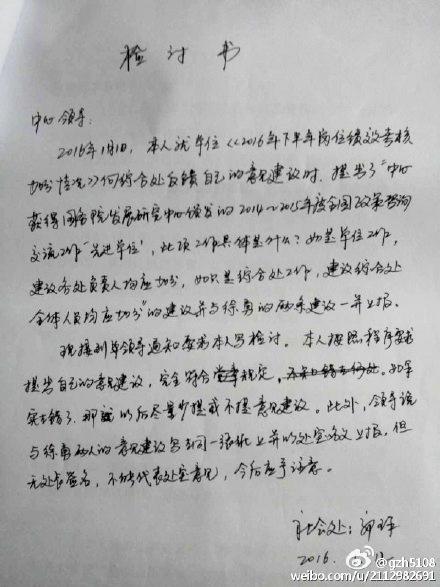 检讨书
中心领导：
2016年1月1日，本人就单位《2016年下半年岗位绩效考核
加分情况》向综合处反馈自己的意见建议时，提出了“中心
获得国务院发展研究中心颁发的2014～2015年度全国政策咨询
交流工作‘先进单位’，此项工作具体是什么？如是单位工作，
建议各处负责人均应加分，如只是综合处工作，建议综合处
全体人员均应加分”的建议并与徐勇的两条建议一并上报。
现接到单领导通知要求本人写检讨。本人按照程序要求
提出自己的意见建议，完全符合规定，不知错在何处。如果
实在错了，那就以后尽量少提或不提意见建议。此外，领导说
与徐勇两人的意见建议写在同一张纸上并以处室名义上报，但
无处长签名，不能代表处室意见，今后应予注意。
社会处：
2016.
@gzh5108
weibo.com/u/2112982691